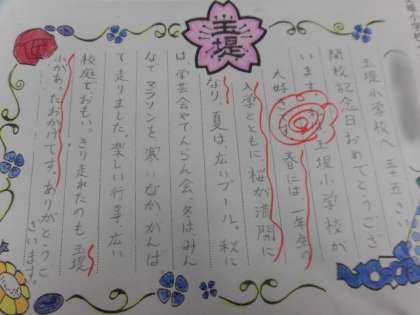 玉堤
玉堤小学校へ 三十五さい
開校記念日おめでとうござ
います。 玉堤小学校が
大好きです。春には一年生の
入学とともに、桜が満開に
なり、夏は、広いプール。秋に
は学芸会やてんらん会、冬はみん
なでマラソンを寒いなかがんば
て走りました。楽しい行事、広い
校庭でおもいきり走れたのも玉堤
小があったおかげです。ありがとうご
ざいます。